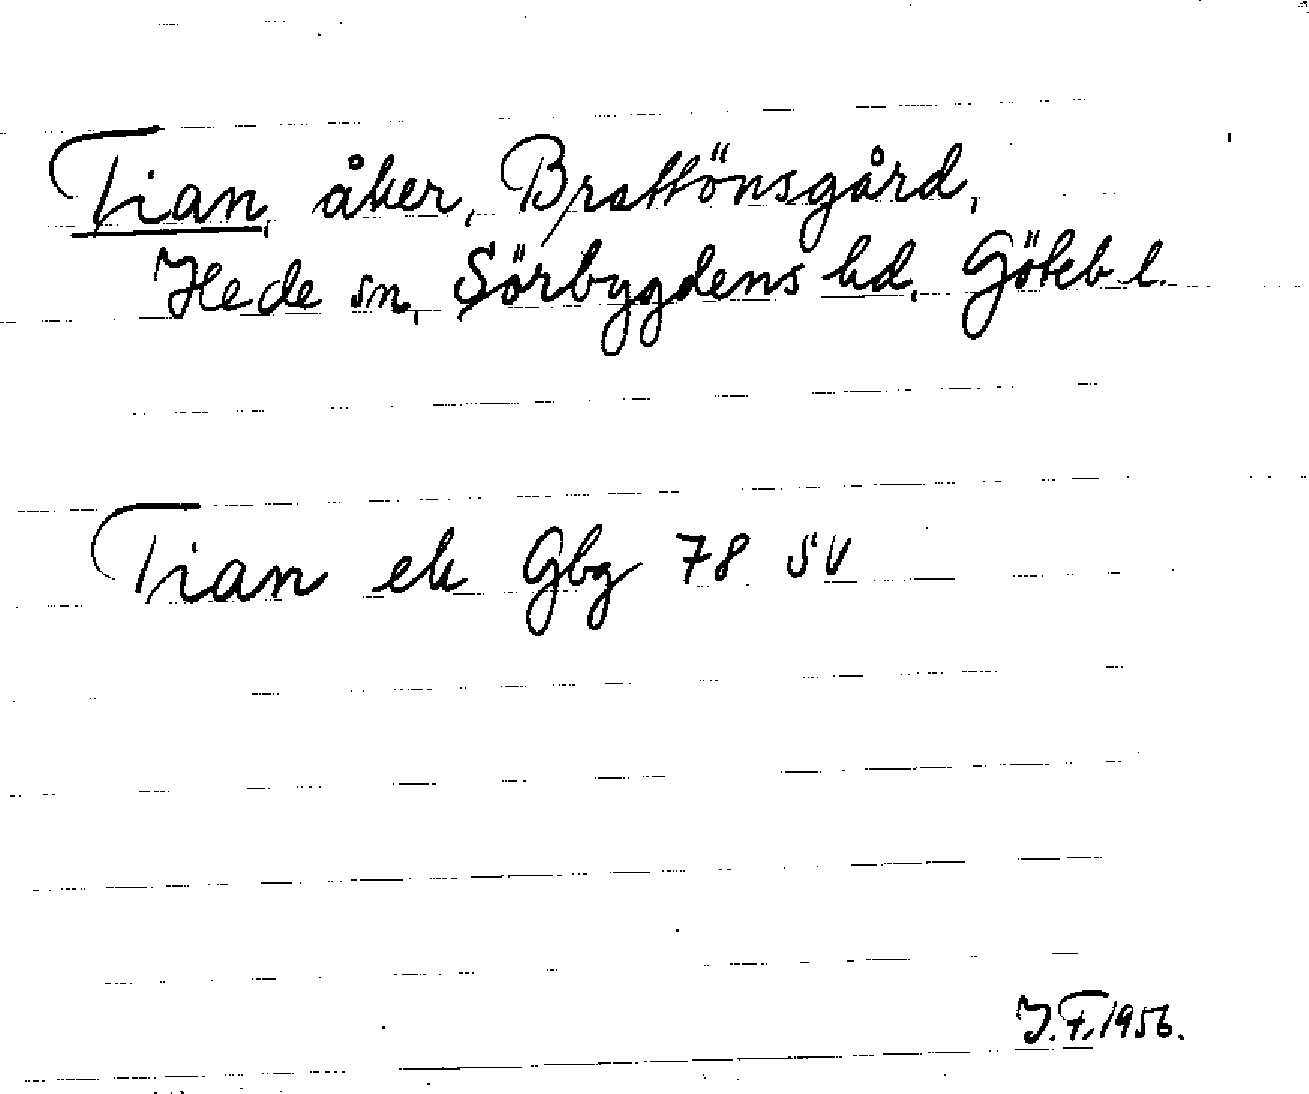 Tian, åker, Brattönsgård,
Hede sn, Sörbygdens hd. Götebl.
Tian ek Gbg 78 SV
J.F. 1956.